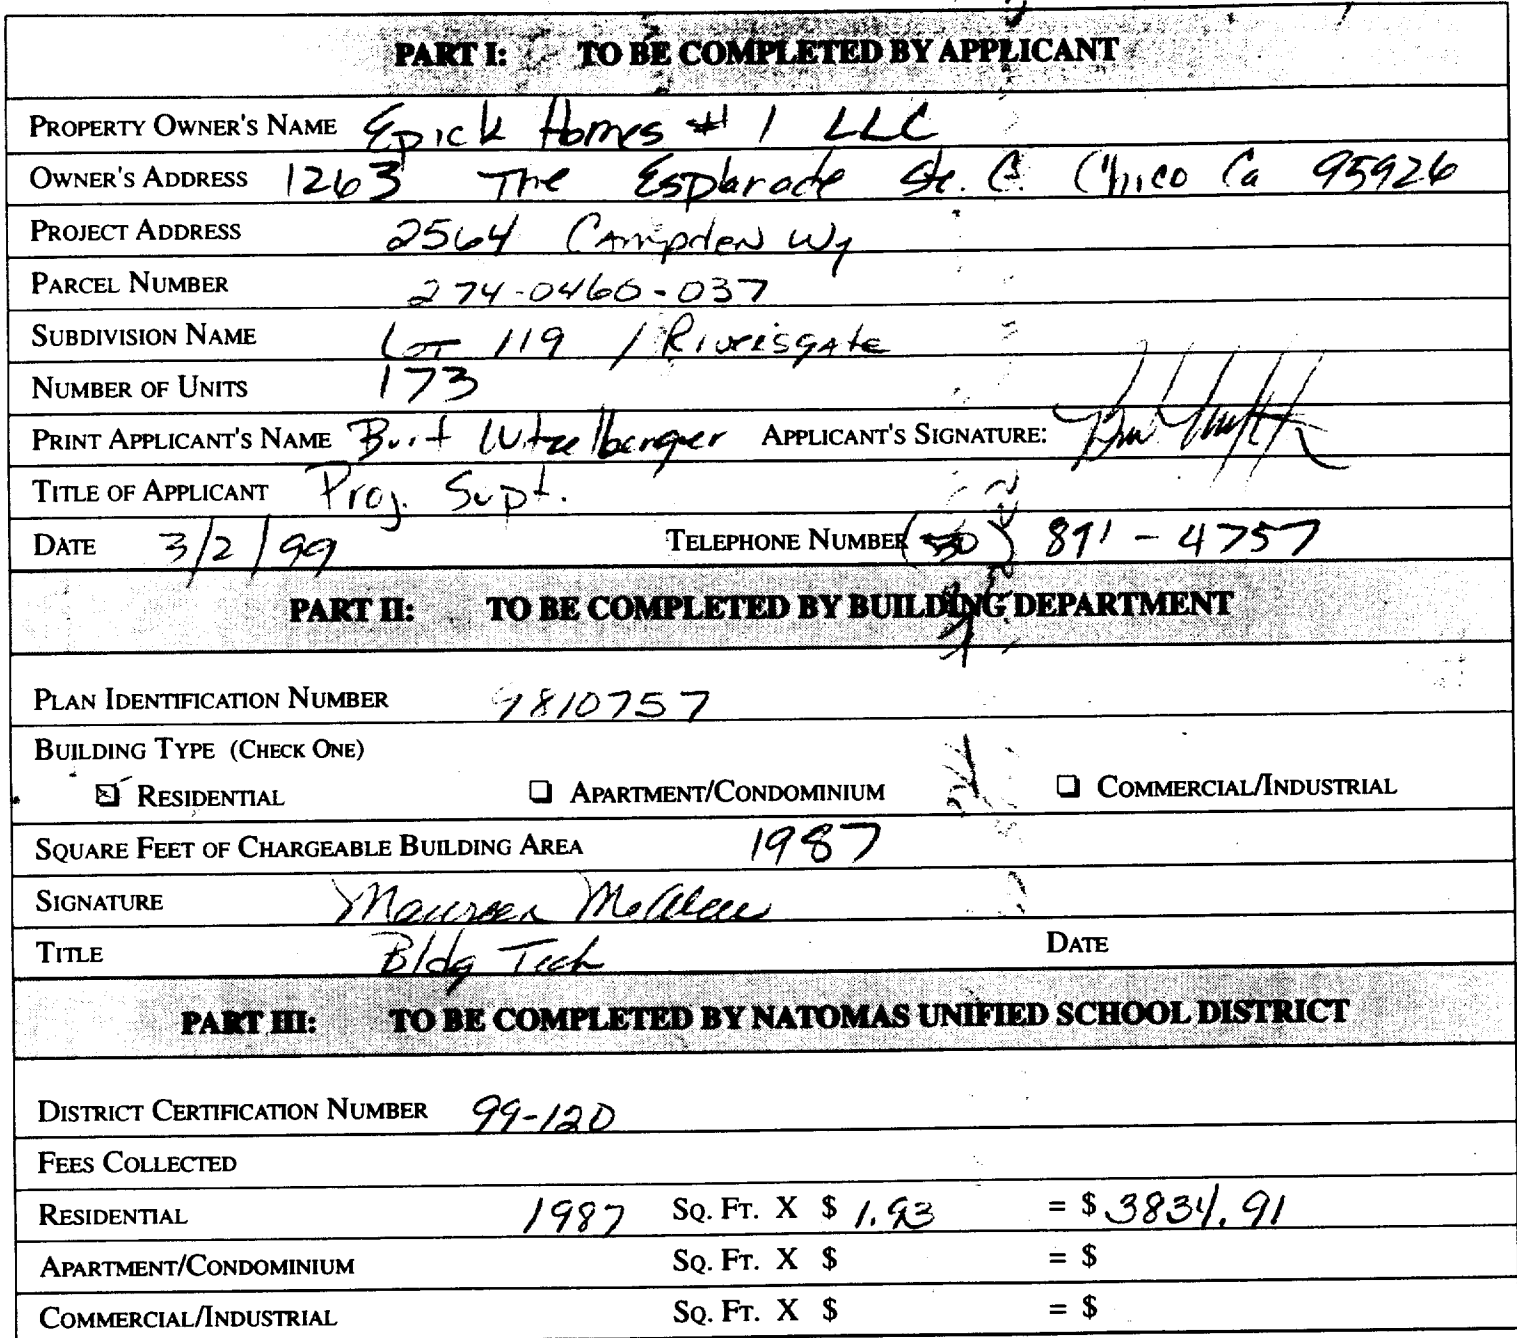 PART I: TO BE COMPLETED BY APPLICANT
PROPERTY OWNER'S NAME Epick Homes #1 LLC
OWNER'S ADDRESS 1263 The Esplanade Ste. C. Chico Ca 95926
PROJECT ADDRESS 2564 Campden Wy
PARCEL NUMBER 274-0460-037
SUBDIVISION NAME Lot 119 / Riverisgate
NUMBER OF UNITS 173
PRINT APPLICANT'S NAME Burt Wutzelberger APPLICANT'S SIGNATURE:
TITLE OF APPLICANT Proj. Supt.
DATE 3/2/99 TELEPHONE NUMBER (530) 891-4757
PART II: TO BE COMPLETED BY BUILDING DEPARTMENT
PLAN IDENTIFICATION NUMBER 9810757
BUILDING TYPE (CHECK ONE)
RESIDENTIAL APARTMENT/CONDOMINIUM COMMERCIAL/INDUSTRIAL
SQUARE FEET OF CHARGEABLE BUILDING AREA 1987
SIGNATURE Maureen
TITLE Bldg Tech DATE
PART III: TO BE COMPLETED BY NATOMAS UNIFIED SCHOOL DISTRICT
DISTRICT CERTIFICATION NUMBER 99-120
FEES COLLECTED
RESIDENTIAL 1987 SQ. FT. X $ 1.93 = $ 3834.91
APARTMENT/CONDOMINIUM SQ. FT. X $ = $
COMMERCIAL/INDUSTRIAL SQ. FT. X $ = $